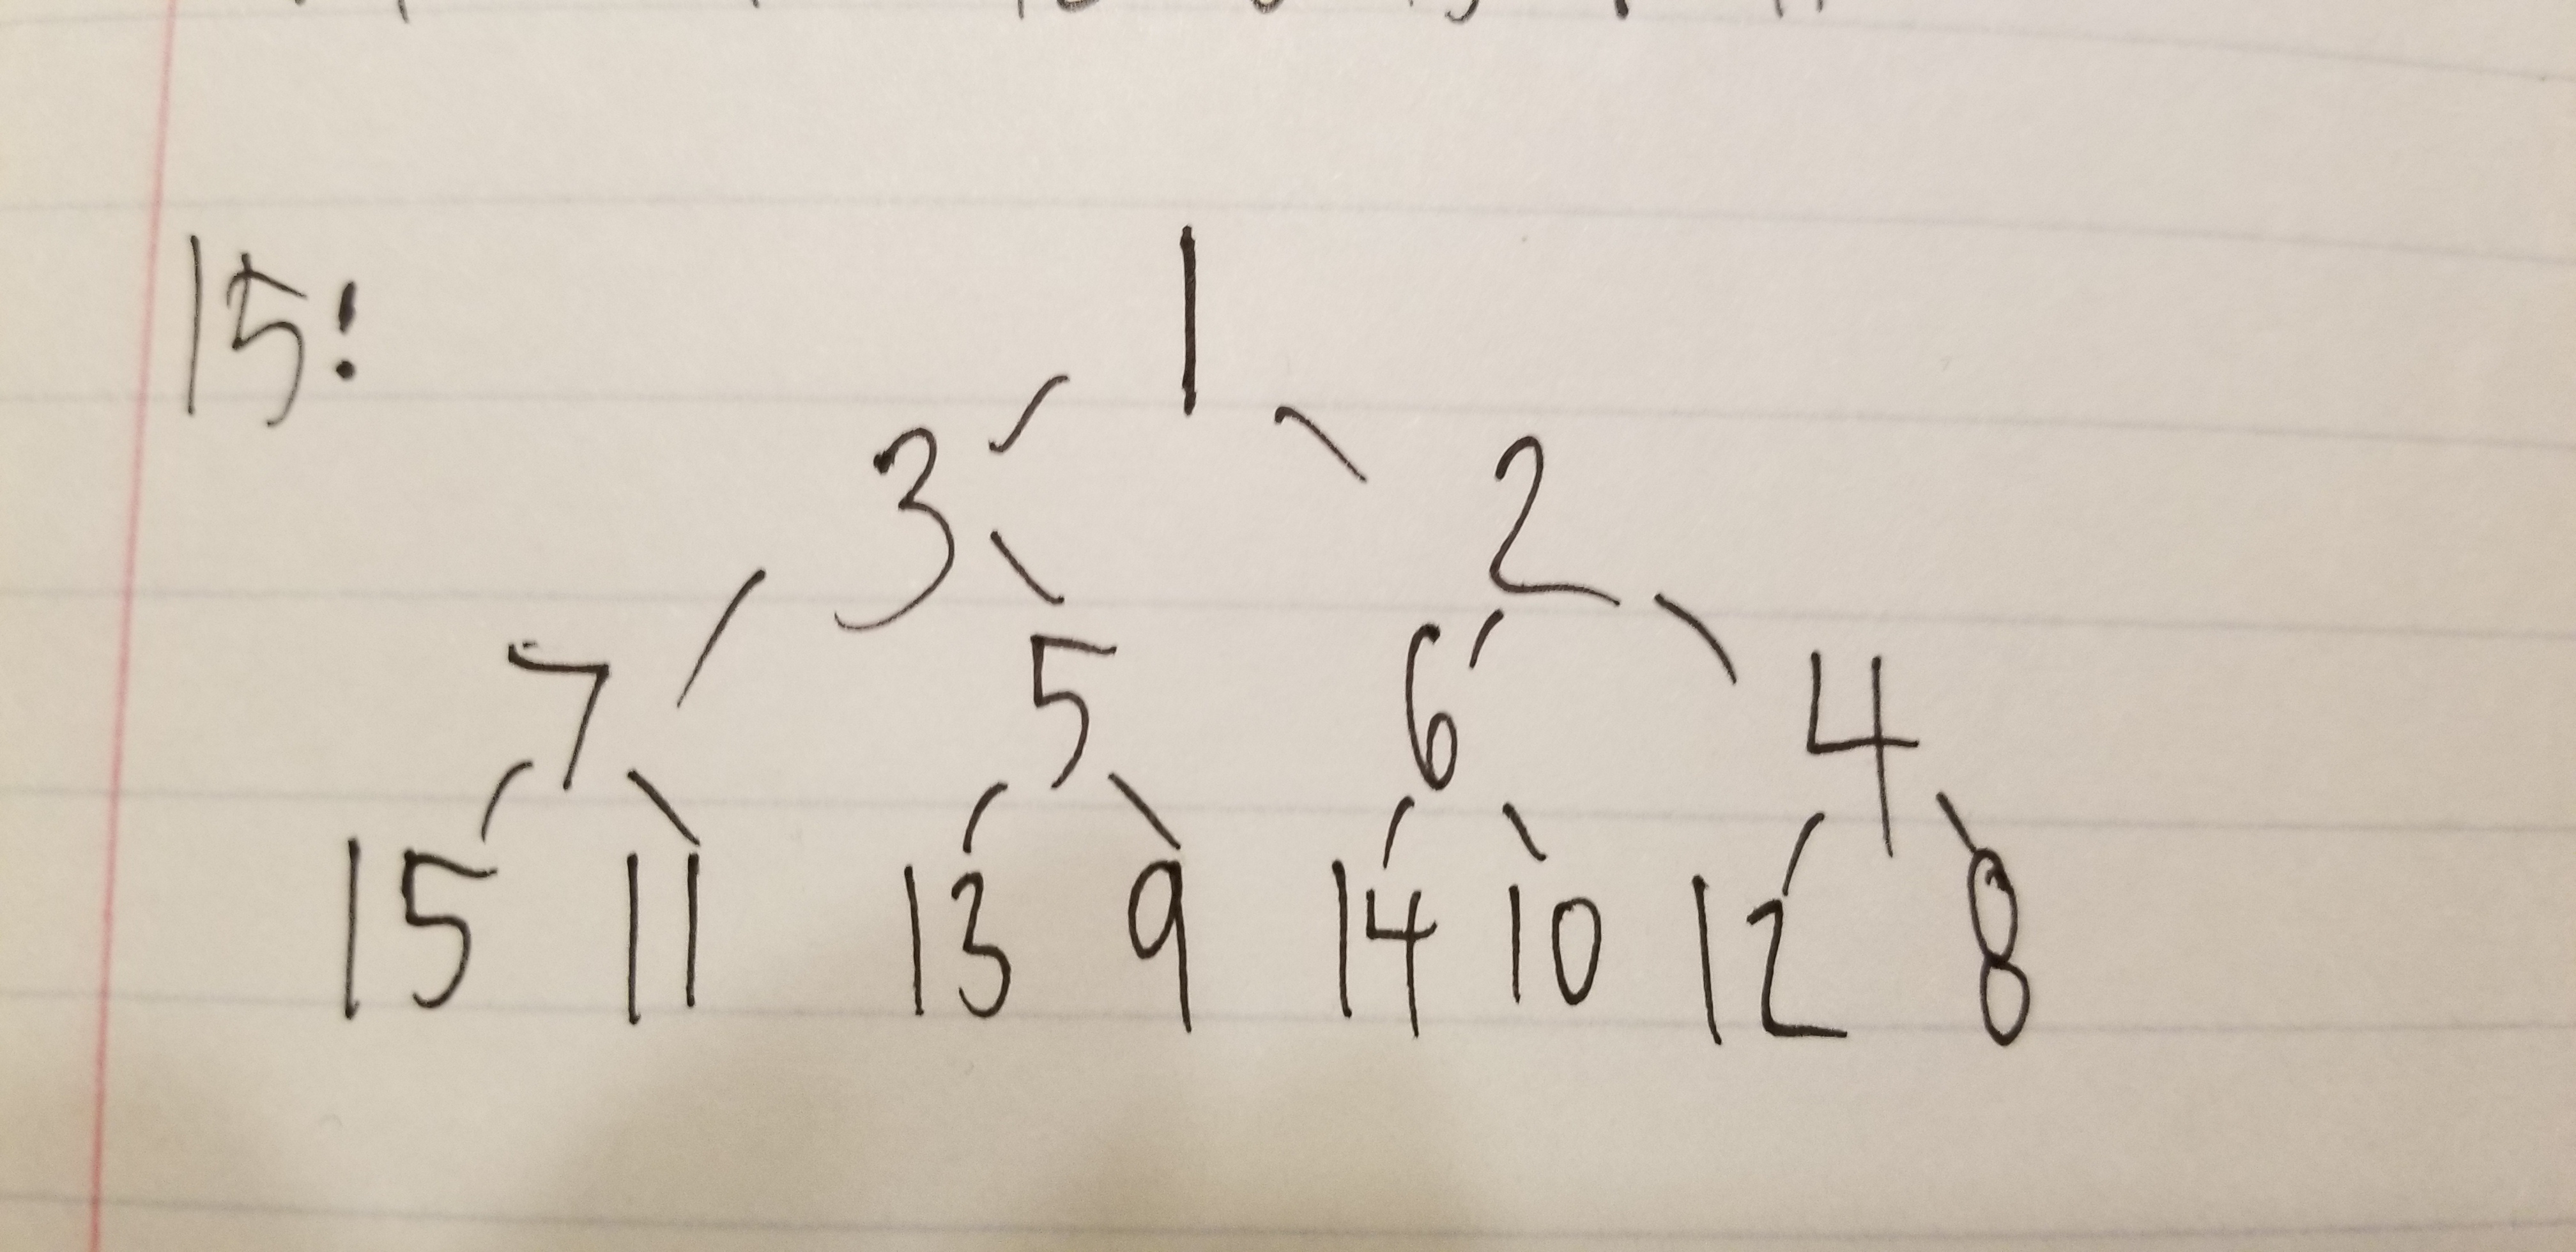 15:
1
3 2
7 5 6 4
15 11 13 9 14 10 12 8